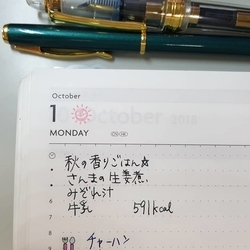 October
1
October 2018
MONDAY
秋の香りごはん☆
さんまの生姜煮
みぞれ汁
牛乳 591kcal
チャーハン